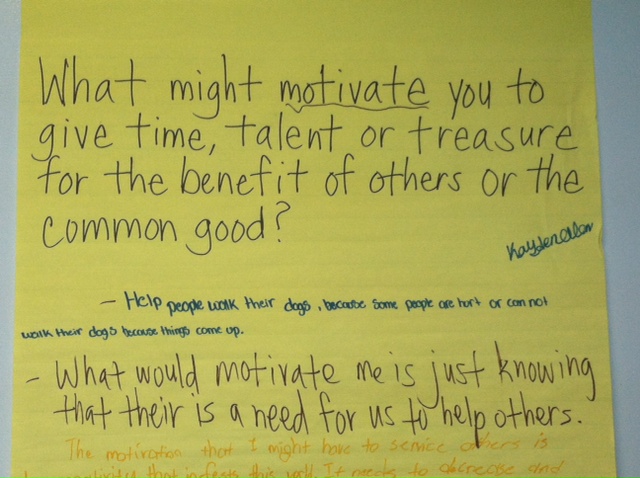 What might motivate you to
give time, talent or treasure
for the benefit of others or the
common good?
- Help people walk their dogs, because some people are hurt or can not
walk their dogs because things come up.
- What would motivate me is just knowing
that their is a need for us to help others.
The motivation that I might have to service others is
that infests this world. It needs to decrease and